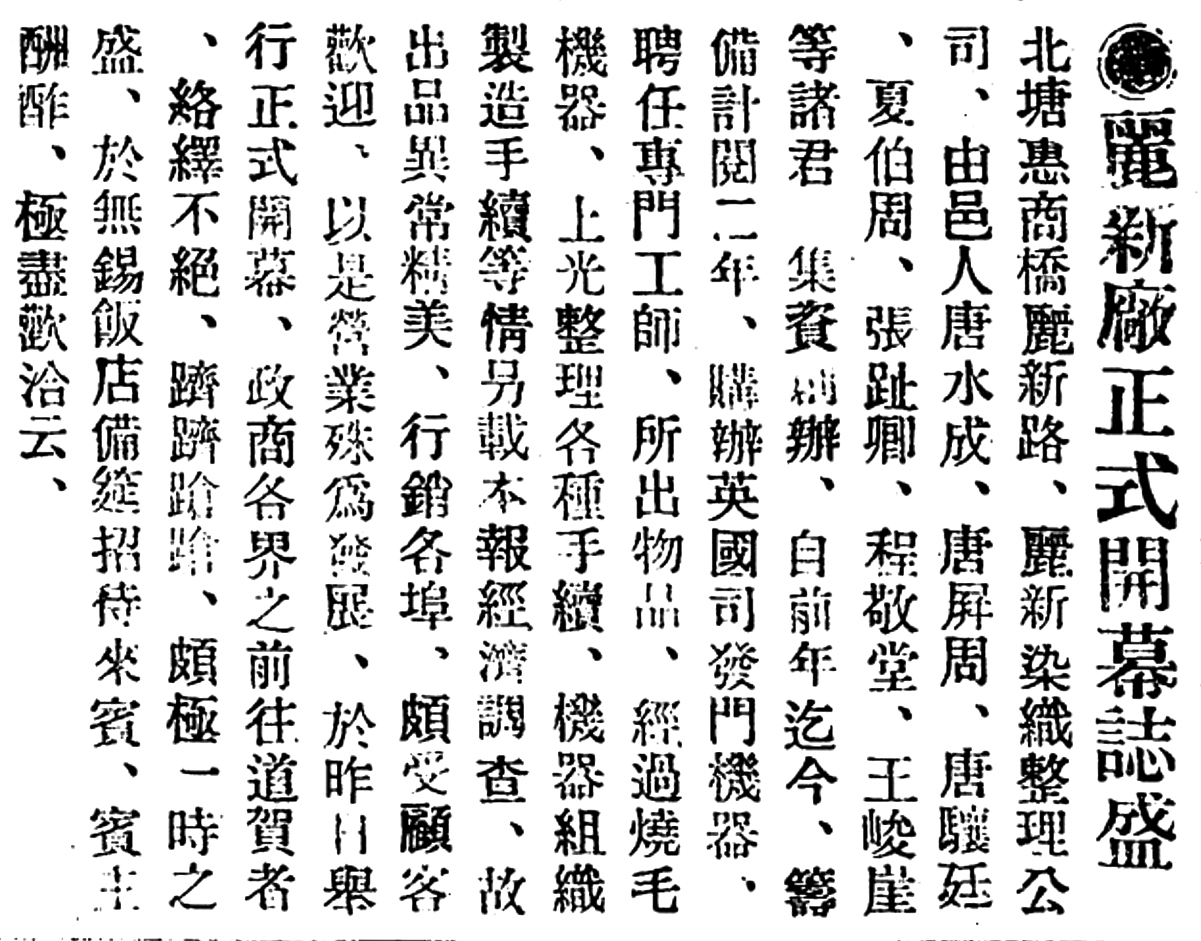 麗新廠正式開幕誌盛
北塘惠商橋麗新路、麗新染織整理公
司、由邑人唐水成、唐屏周、唐驤廷
、夏伯周、張趾卿、程敬堂、王峻崖
等諸君　集資創辦、自前年迄今、籌
備計閱二年、購辦英國司發門機器、
聘任專門工師、所出物品、經過燒毛
機器、上光整理各種手續、機器組織
製造手續等情另載本報經濟調查、故
出品異常精美、行銷各埠、頗受顧客
歡迎、以是營業殊爲發展、於昨日舉
行正式開幕、政商各界之前往道賀者
、絡繹不絕、躋躋蹌蹌、頗極一時之
盛、於無錫飯店備筵招待來賓、賓主
酬酢、極盡歡洽云、